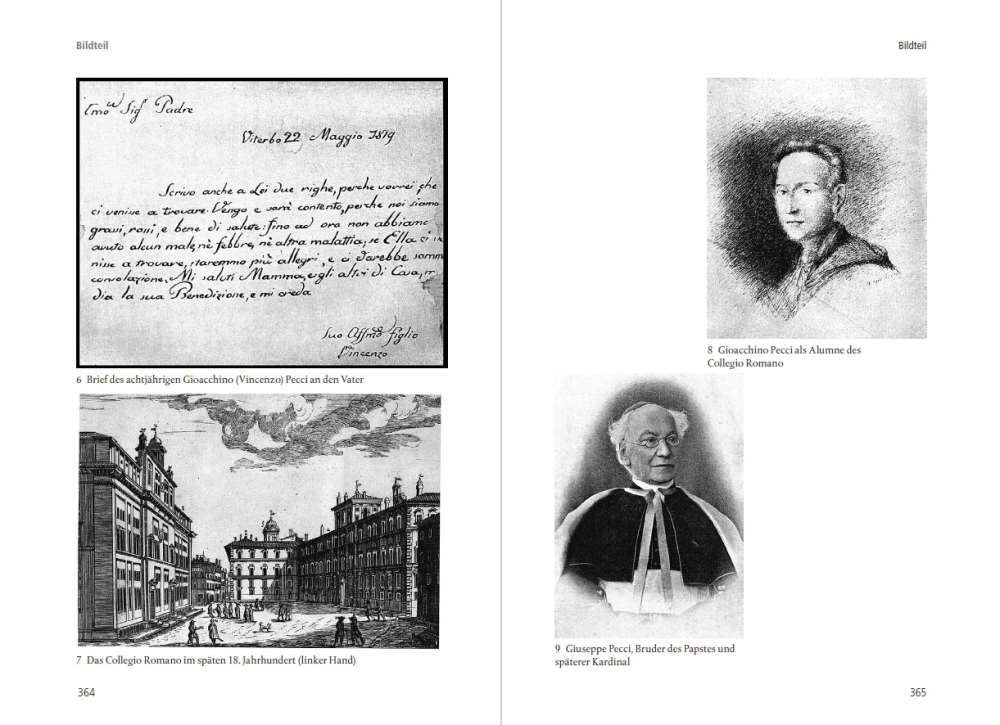 Bildteil
Emo Sigr Padre
Viterbo 22 Maggio 1819
Scrivo anche a Lei due righe, perche vorrei che
ci venisse a trovare. Venga e sarà contento, perche noi siamo
grassi, rossi, e bene di salute: fino ad ora non abbiamo
avuto alcun male, nè febbre, nè altra malattia, se Ella ci ve
nisse a trovare, staremmo più allegri, e ci darebbe somm
consolazione. Mi saluti Mamma, e gli altri di Casa, m
dia la sua Benedizione, e mi creda
Suo Affmo Figlio
Vincenzo
6 Brief des achtjährigen Gioacchino (Vincenzo) Pecci an den Vater
7 Das Collegio Romano im späten 18. Jahrhundert (linker Hand)
364
Bildteil
8 Gioacchino Pecci als Alumne des
Collegio Romano
9 Giuseppe Pecci, Bruder des Papstes und
späterer Kardinal
365